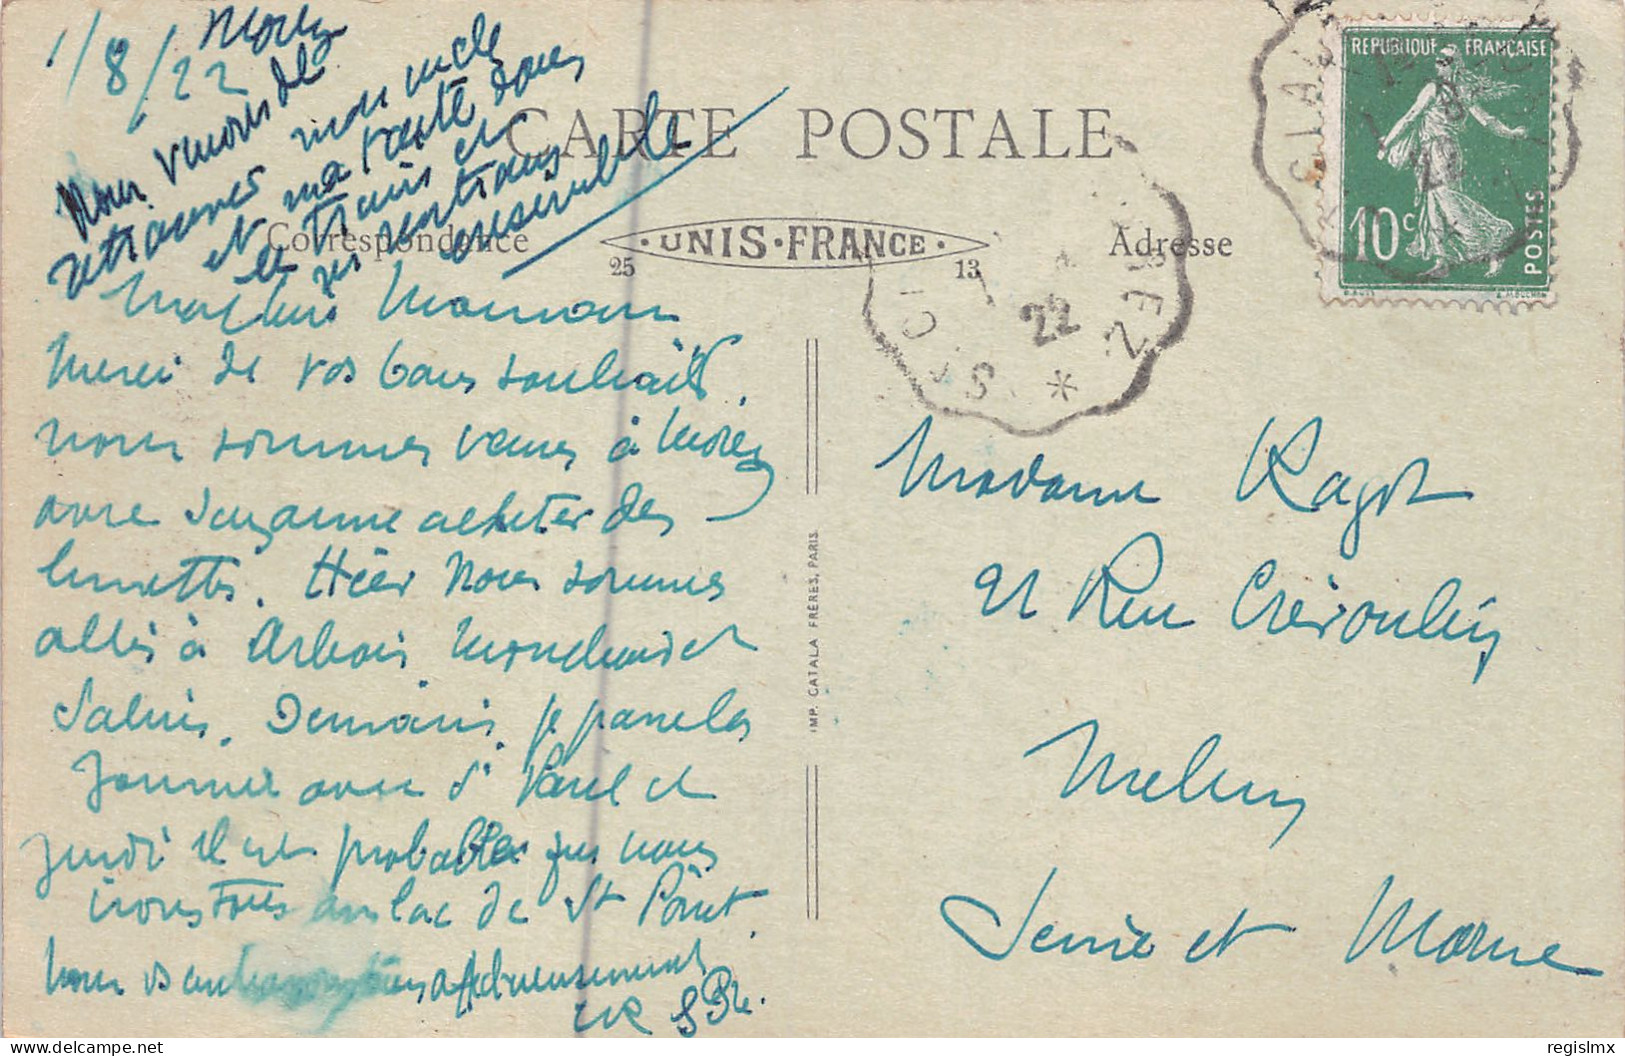 1/8/22 Morez
Nous venons de
retrouver mon oncle
et ma tante dans
le train et
nous rentrons
ensemble
CARTE POSTALE
Correspondance
UNIS-FRANCE
25 13
Adresse
REPUBLIQUE FRANÇAISE
10c
POSTES
22
22
Ma chère Maman
Merci de vos bons souhaits.
nous sommes venus à Morez
avec Suzanne acheter des
lunettes. Hier nous sommes
allés à Arbois Mouchard et
Salins. Demain je passe la
journée avec St Paul et
jeudi il est probable que nous
irons tous au lac de St Point.
Nous vs embrassons bien affectueusement
IMP. CATALA FRÈRES, PARIS
Madame Ragot
21 Rue
Melun
Seine et Marne
regislmx
delcampe.net